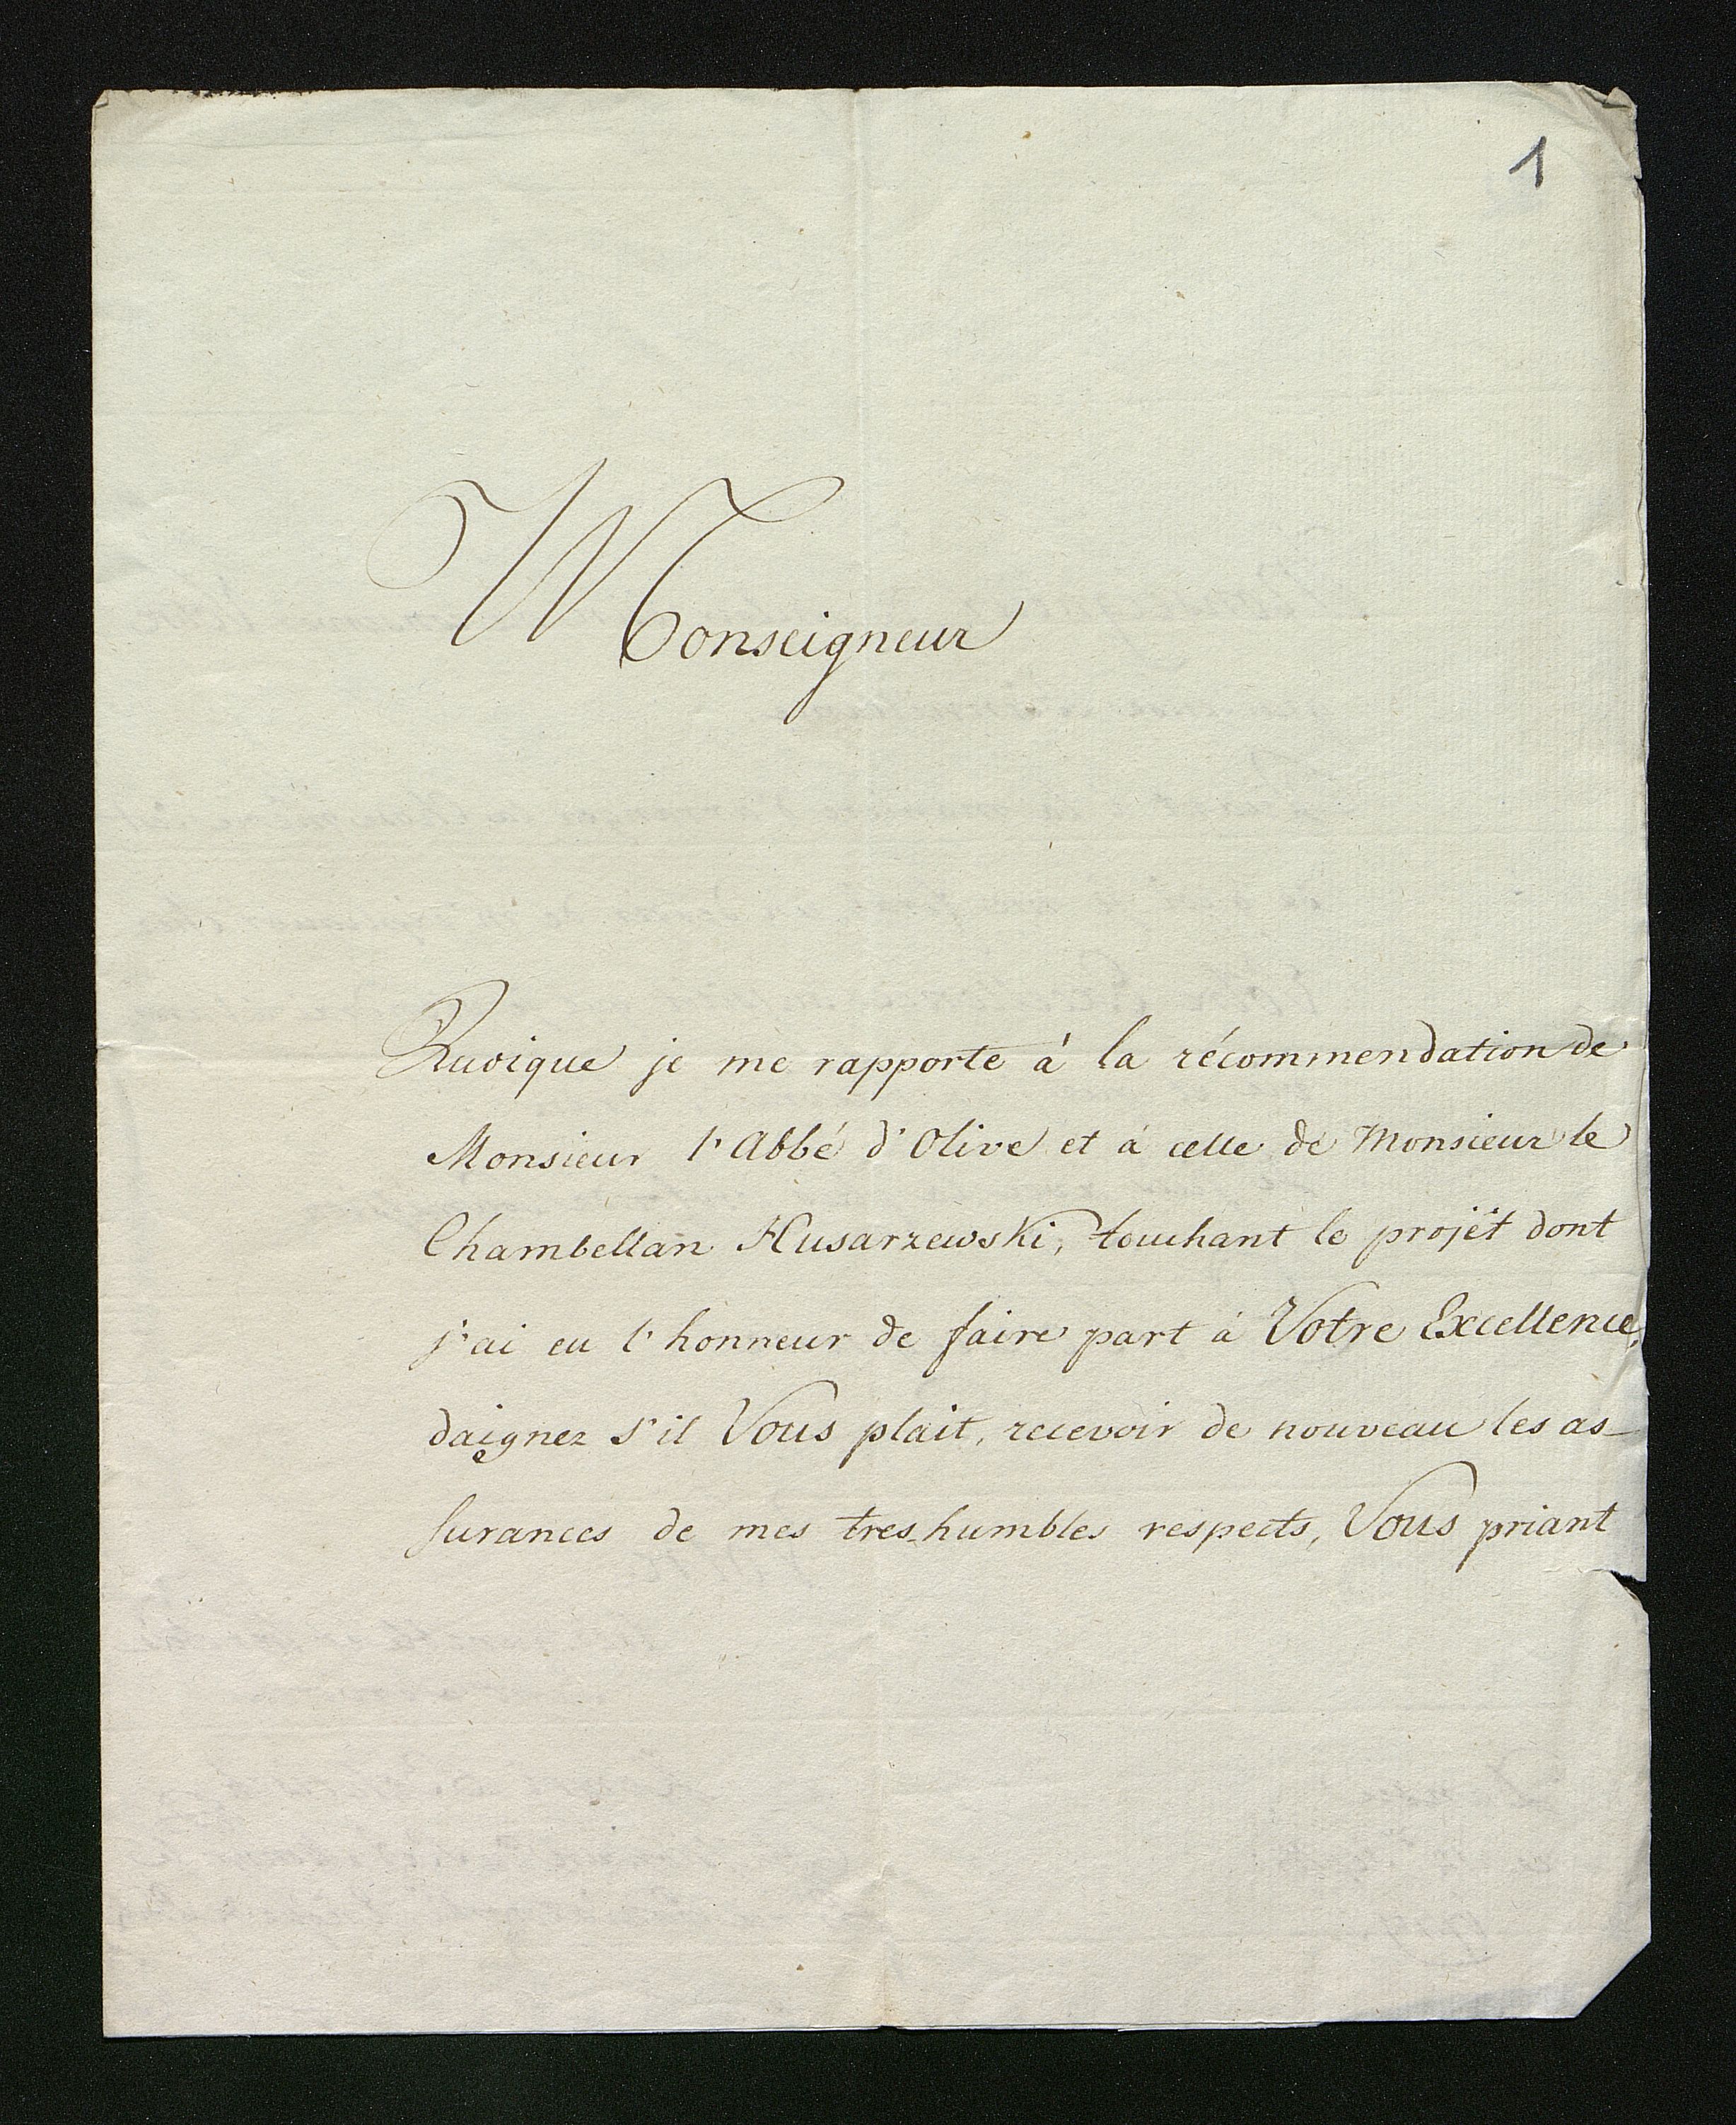 1
Monseigneur
Quoique je me rapporte à la récommendation de
Monsieur l'Abbé d'Olive et à celle de Monsieur le
Chambellan Husarzewski, touchant le projèt dont
j'ai eu l'honneur de faire part à Votre Excellence,
daignez s'il Vous plait, recevoir de nouveau les as-
surances de mes tres-humbles respects, Vous priant